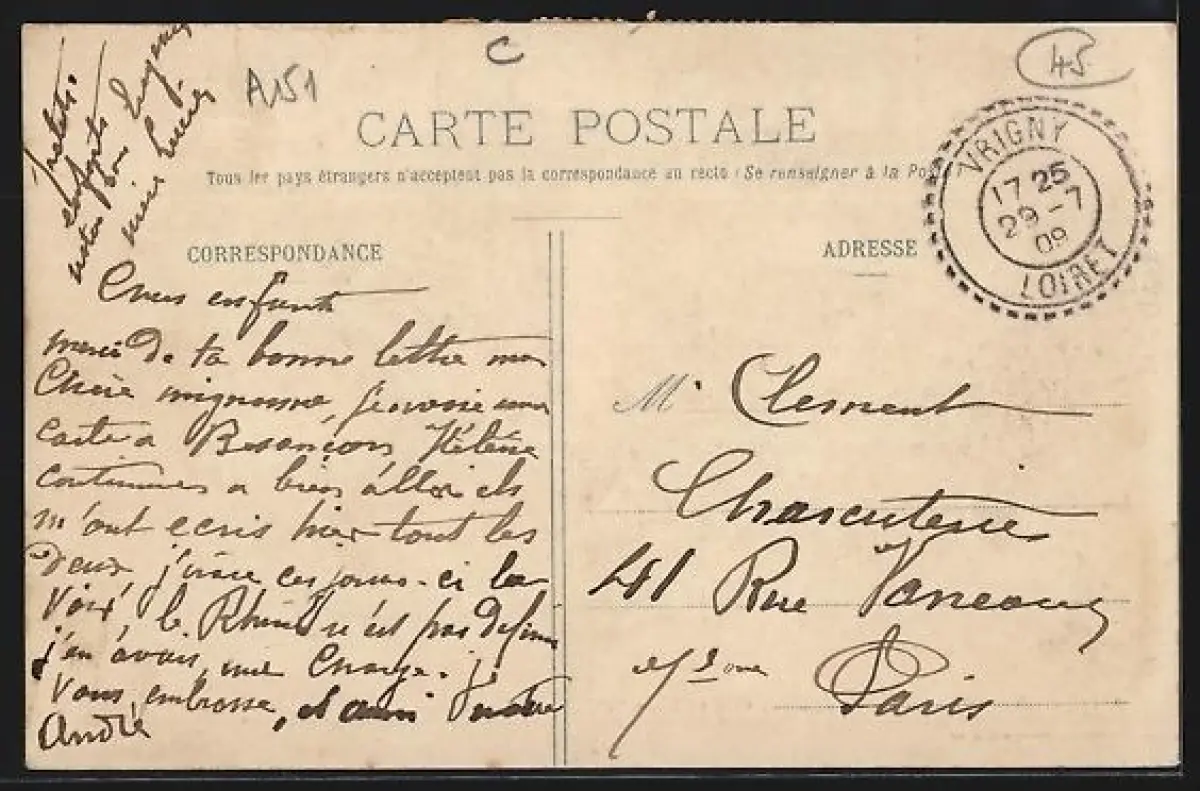 C
A151
45
CARTE POSTALE
Tous les pays étrangers n'acceptent pas la correspondance au recto (Se renseigner à la Poste)
VRIGNY
17 25
29 - 7
09
LOIRET
CORRESPONDANCE
ADRESSE
petits
enfants
mère
Chers enfants
merci de ta bonne lettre ma
Chère mignonne, une
carte a Besançon Hélène
continues a bien aller ils
m'ont ecris hier tout les
Deux, j'irais ces jours-ci la
Voir, le Rhume n'est pas
j'en avais une Charge. je
Vous embrasse, et
André
M. Clement
Charcuterie
41 Rue Vaneau
Paris